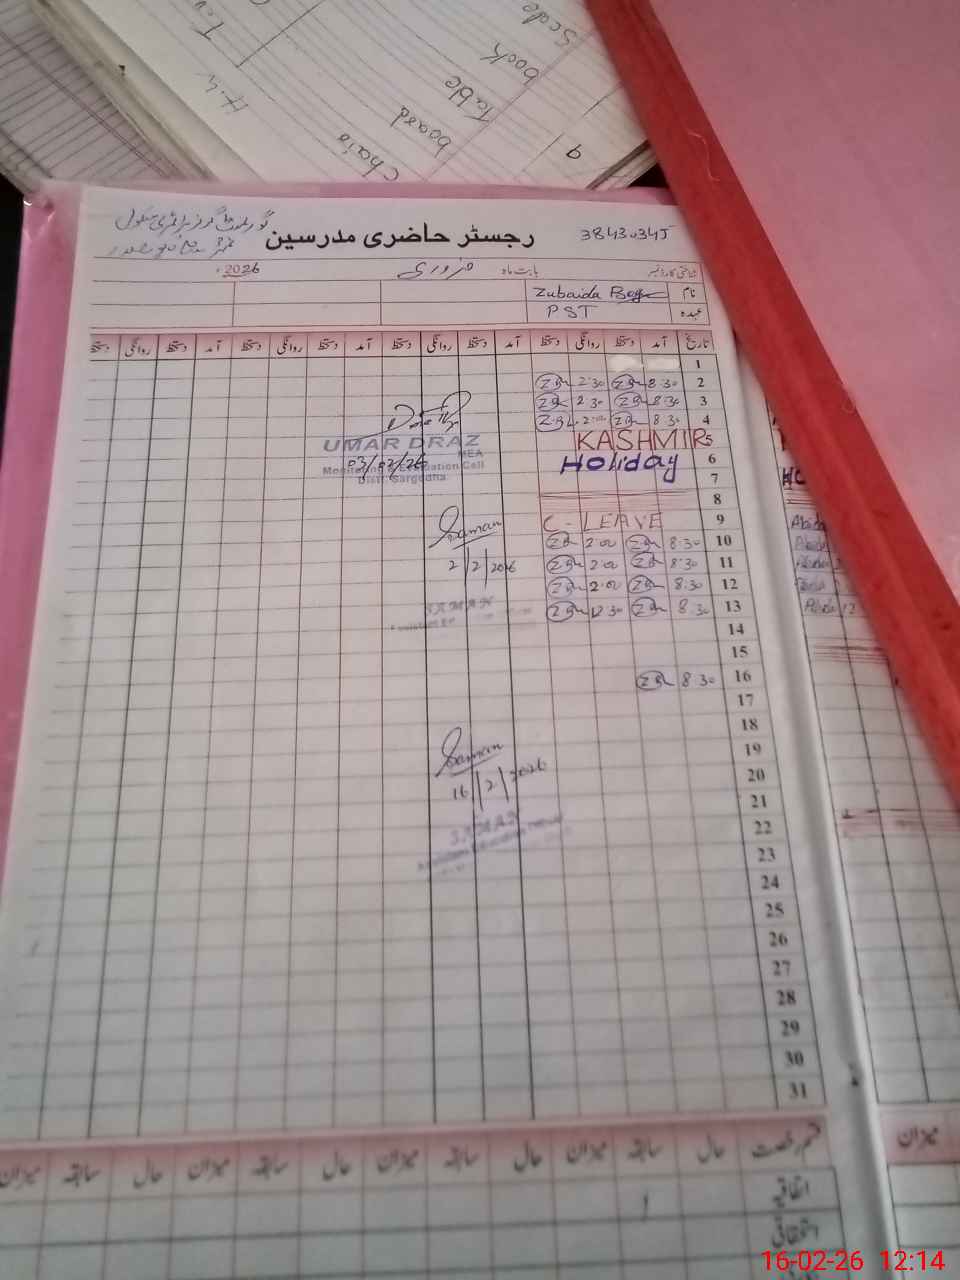 Scale
book
Table
board
chair
9
T.v
رجسٹر حاضری مدرسین
38430345
گورنمنٹ گرلز پرائمری سکول
بابت ماہ فروری 2026
نام Zubaida
عہدہ PST
تاریخ آمد دستخط روانگی دستخط آمد دستخط روانگی دستخط آمد دستخط روانگی دستخط آمد دستخط روانگی دستخط
1
2 8:30 ZB 2:30 ZB
3 8:30 ZB 2:30 ZB
4 8:30 ZB 2:00 ZB
5 KASHMIR
6 Holiday
7
8
9 C-LEAVE
10 8:30 ZB 2:00 ZB
11 8:30 ZB 2:00 ZB
12 8:30 ZB 2:00 ZB
13 8:30 ZB 12:30 ZB
14
15
16 8:30 ZB
17
18
19
20
21
22
23
24
25
26
27
28
29
30
31
UMAR DRAZ
MEA
03/02/26
Monitoring & Evaluation Cell
Distt. Sargodha
Saman
2/2/2026
SAMAN
Assistant
Saman
16/2/2026
SAMAN
Assistant Education
قسم رخصت حال سابقہ میزان حال سابقہ میزان حال سابقہ میزان حال سابقہ میزان
اتفاقیہ 1
استحقاقی
میزان
16-02-26 12:14